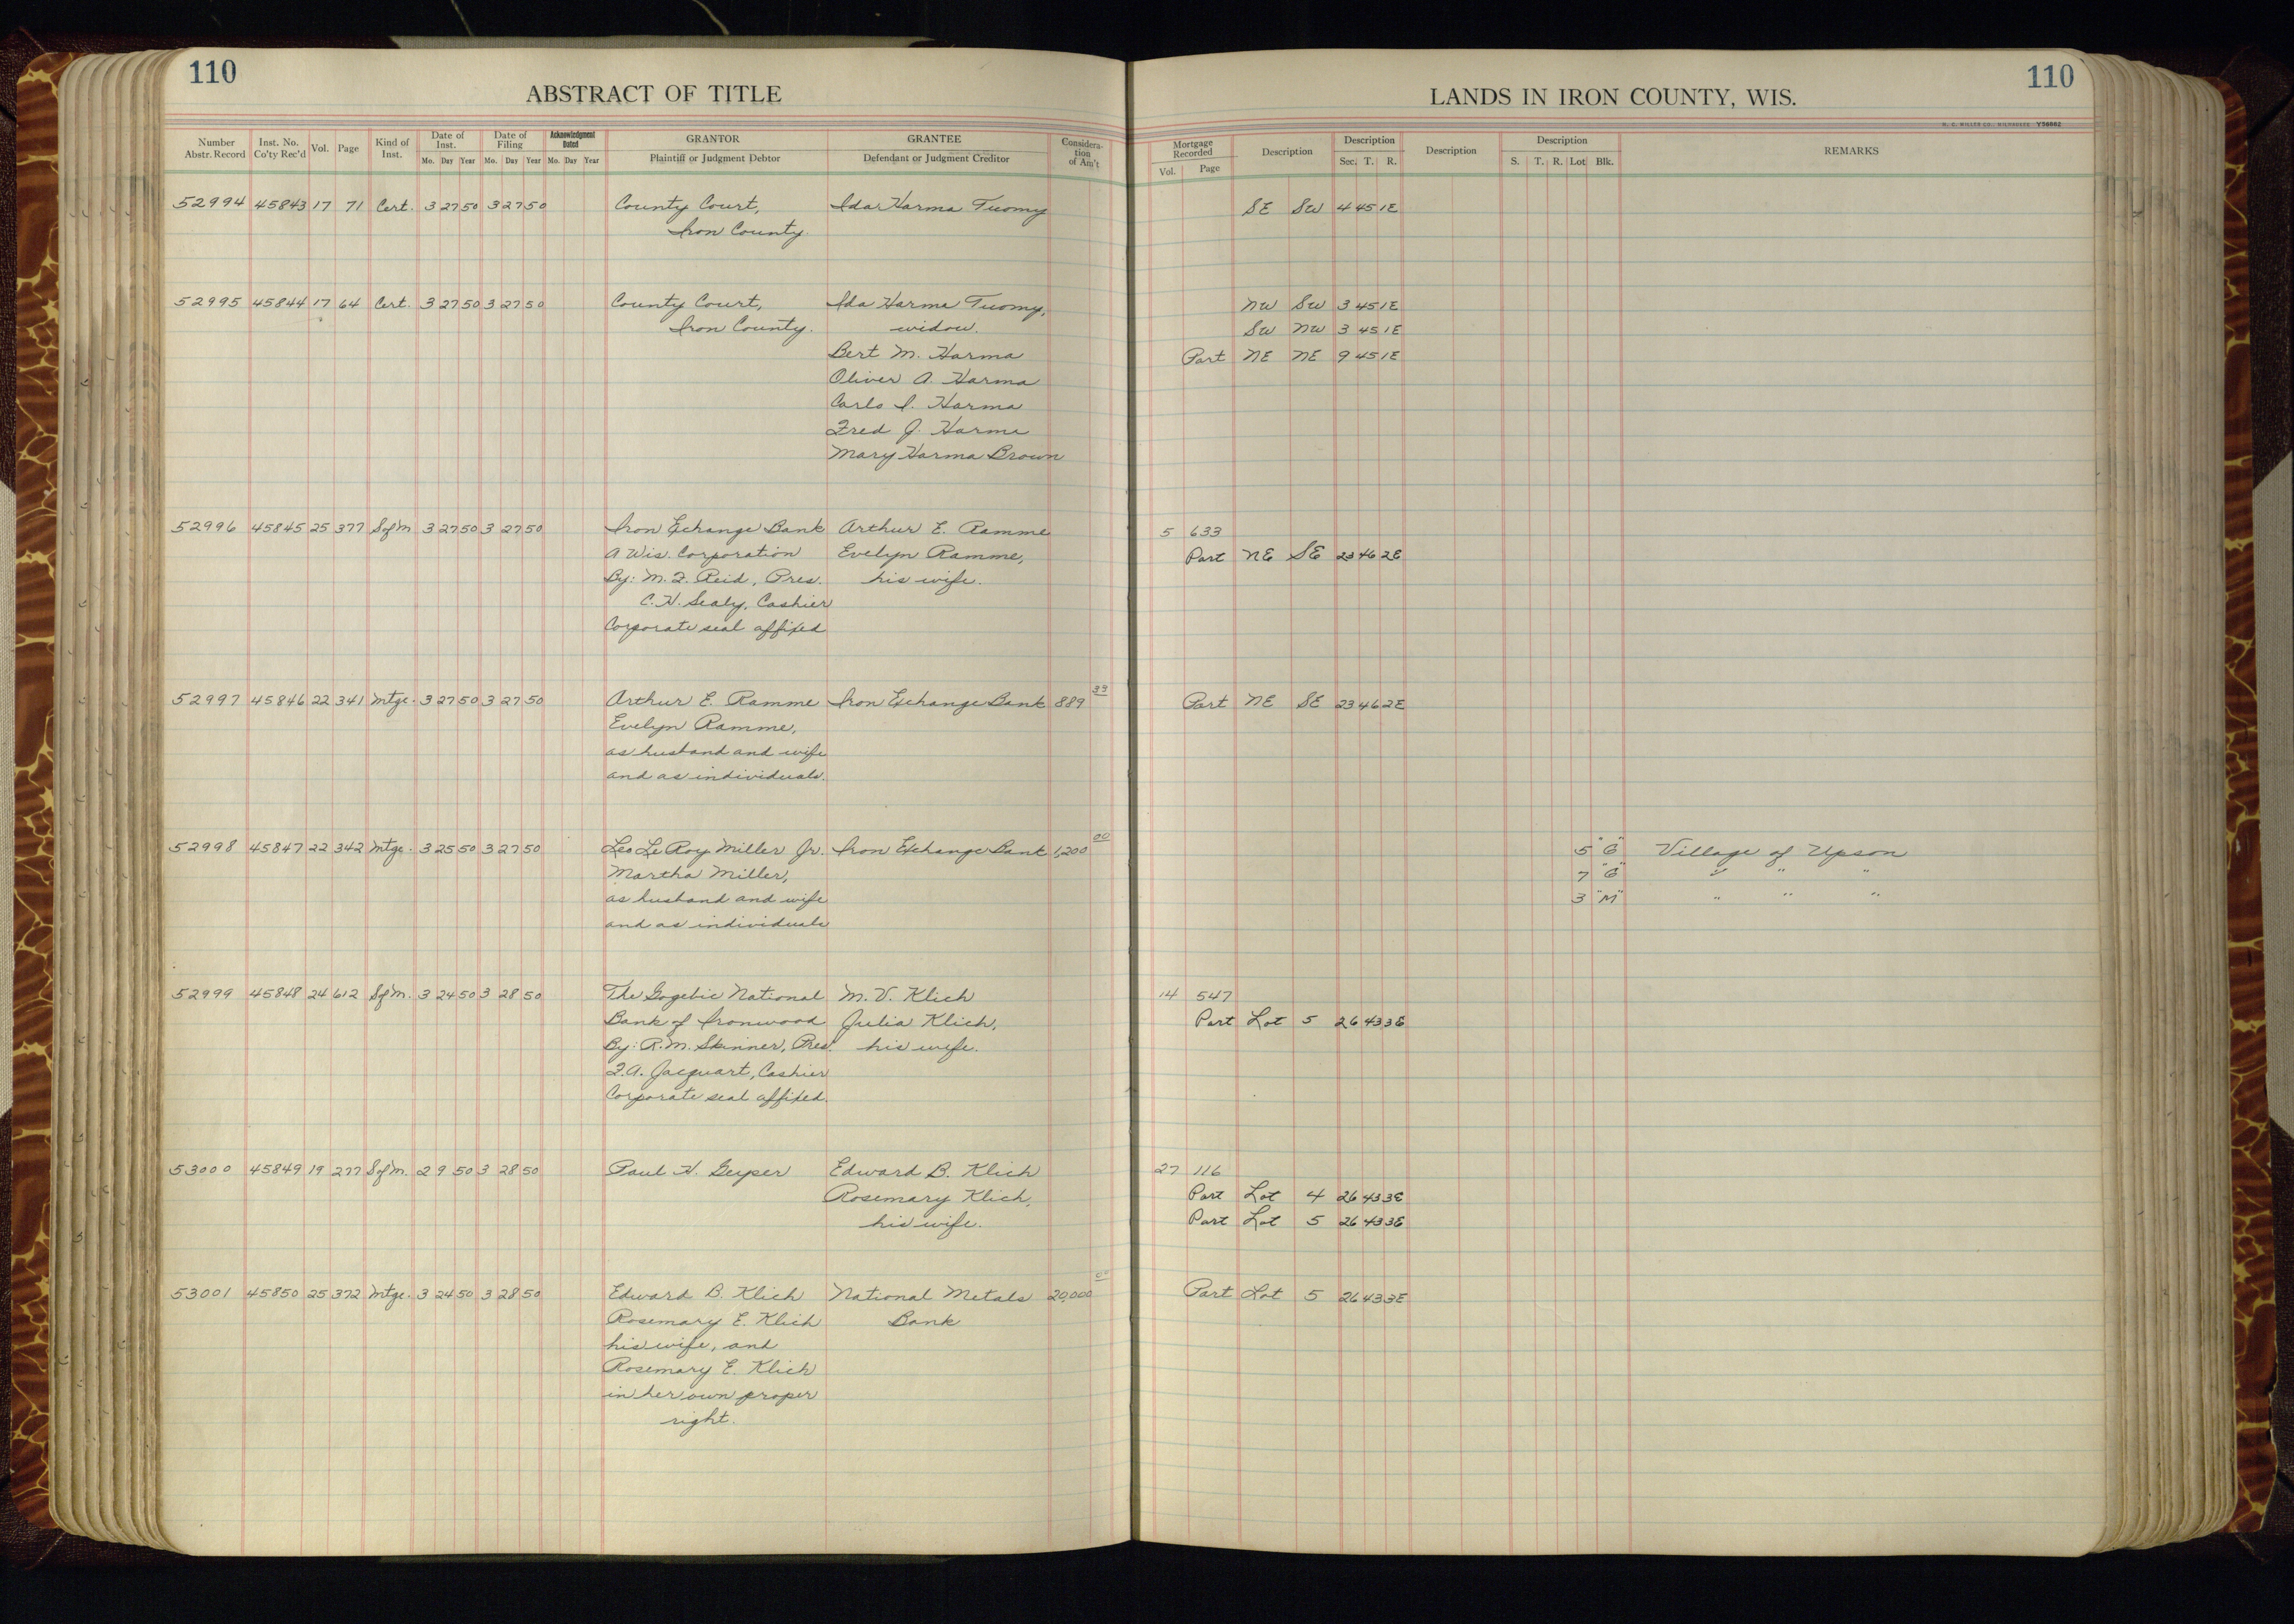 110
ABSTRACT OF TITLE
Number Abstr. Record Inst. No. Co'ty Rec'd Vol. Page Kind of Inst. Date of Inst. Mo. Day Year Date of Filing Mo. Day Year Acknowledgment Dated Mo. Day Year GRANTOR Plaintiff or Judgment Debtor GRANTEE Defendant or Judgment Creditor Consideration of Am't
52994 45843 17 71 Cert. 3 27 50 3 27 50 County Court, Ida Harma Tuomy
Iron County.
52995 45844 17 64 Cert. 3 27 50 3 27 50 County Court, Ida Harma Tuomy,
Iron County. widow.
Bert M. Harma
Oliver A. Harma
Carlo I. Harma
Fred J. Harma
Mary Harma Brown
52996 45845 25 377 S of M. 3 27 50 3 27 50 Iron Exchange Bank Arthur E. Ramme
A Wis. Corporation Evelyn Ramme,
By: M. F. Reid, Pres. his wife.
C. H. Sealy, Cashier
Corporate seal affixed
52997 45846 22 341 Mtge. 3 27 50 3 27 50 Arthur E. Ramme Iron Exchange Bank 889 33
Evelyn Ramme,
as husband and wife
and as individuals.
52998 45847 22 342 Mtge. 3 25 50 3 27 50 Leo Le Roy Miller Jr. Iron Exchange Bank 1,200 00
Martha Miller,
as husband and wife
and as individuals
52999 45848 24 612 S of M. 3 24 50 3 28 50 The Gogebic National M. V. Klich
Bank of Ironwood Julia Klich,
By: R. M. Skinner, Pres. his wife.
F. A. Jacquart, Cashier
Corporate seal affixed.
53000 45849 19 277 S of M. 2 9 50 3 28 50 Paul H. Geyser Edward B. Klich
Rosemary Klich,
his wife.
53001 45850 25 372 Mtge. 3 24 50 3 28 50 Edward B. Klich National Metals 20,000 00
Rosemary E. Klich Bank
his wife, and
Rosemary E. Klich
in her own proper
right.
110
LANDS IN IRON COUNTY, WIS.
H. C. MILLER CO., MILWAUKEE Y56662
Mortgage Recorded Vol. Page Description Description Sec. T. R. Description Description S. T. R. Lot Blk. REMARKS
SE SW 4 45 1E
NW SW 3 45 1E
SW NW 3 45 1E
Part NE NE 9 45 1E
5 633
Part NE SE 23 46 2E
Part NE SE 23 46 2E
5 "G" Village of Upson
7 "G" " " "
3 "M" " " "
14 547
Part Lot 5 26 43 3E
27 116
Part Lot 4 26 43 3E
Part Lot 5 26 43 3E
Part Lot 5 26 43 3E